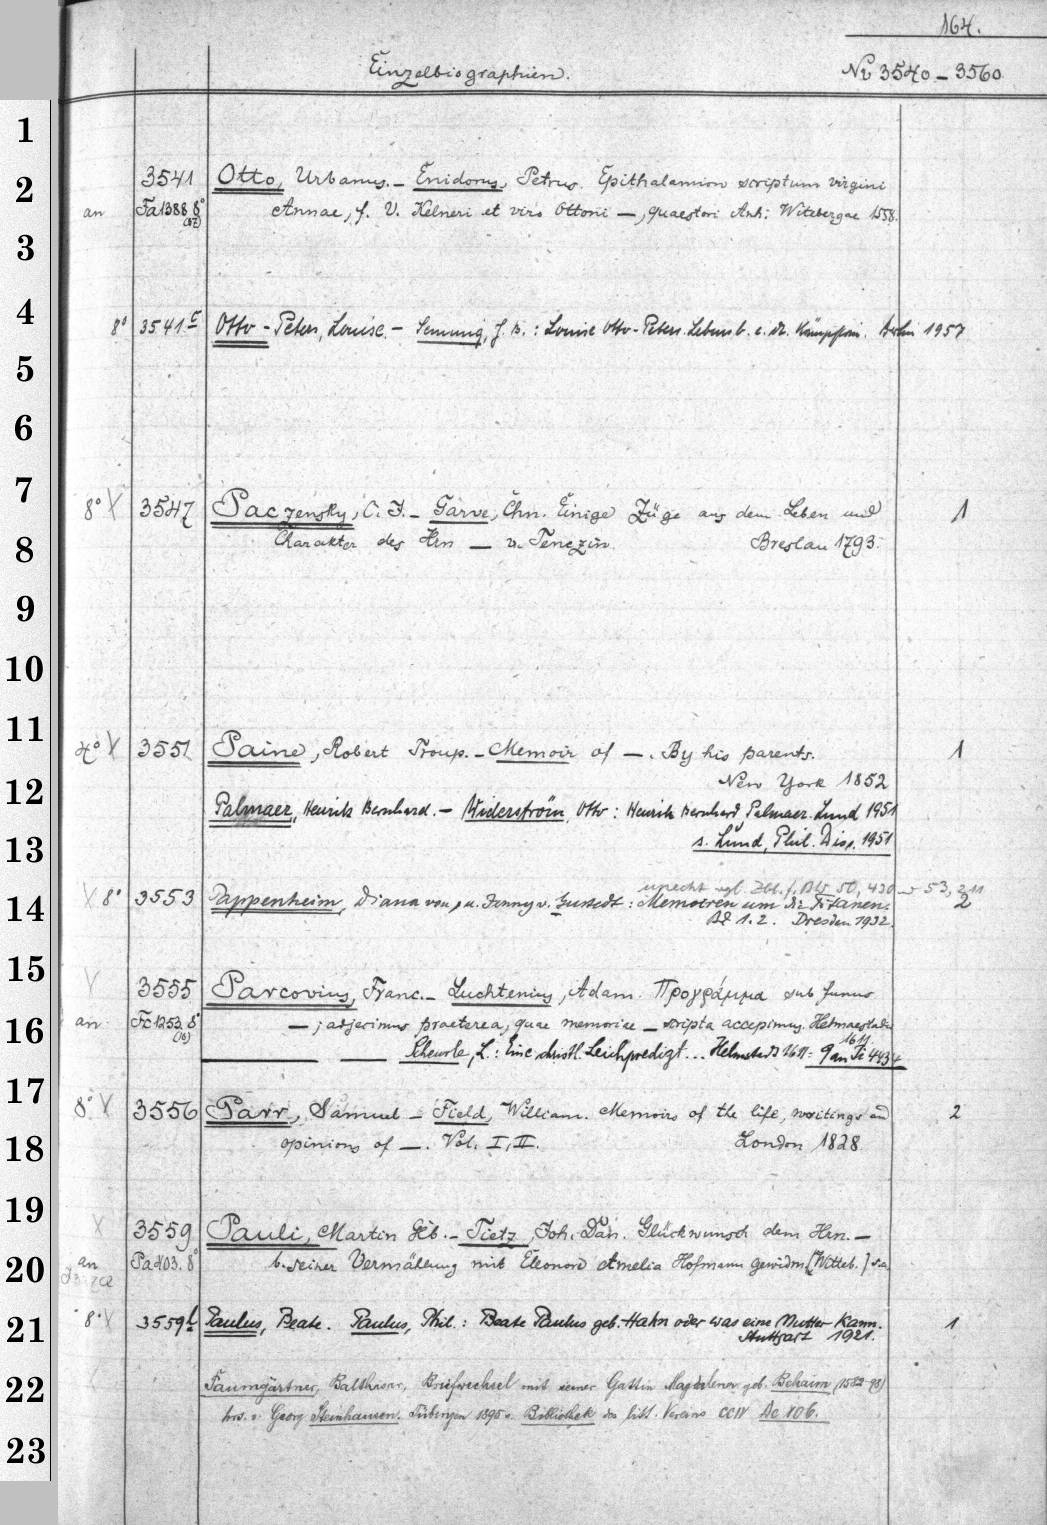 164.
Einzelbiographien. No 3540 – 3560
1
2
3
4
5
6
7
8
9
10
11
12
13
14
15
16
17
18
19
20
21
22
23
3541 Otto, Urbanus. – Enidorus, Petrus. Epithalamion scriptum virgini
an Fa 1388 8° (87) Annae, f. V. Kelneri et viro Ottoni —, quaestori Witebergae 1558.
8° 3541 c Otto-Peters, Louise. – Semmig, J. B.: Louise Otto-Peters. Lebensb. e. dt. Kämpferin. Berlin 1957
8° X 3547 Paczensky, C. J. – Garve, Chn. Einige Züge aus dem Leben und 1
Charakter des Hrn — v. Tenczin. Breslau 1793.
4° X 3551 Paine, Robert Troup. – Memoir of —. By his parents. 1
New York 1852
Palmaer, Henrik Bernhard. – Widerström, Otto: Henrik Bernhard Palmaer. Lund 1951
s. Lund, Phil. Diss. 1951
unecht vgl. Zbl. f. Bw 50, 430 – 53, 211
X 8° 3553 Pappenheim, Diana von, u. Jenny v. Gustedt: Memoiren um die Titanen. 2
Bd 1. 2. Dresden 1932.
3555 Parcovius, Franc. – Luchtenius, Adam. Προγράμμα sub funus
an Fc 1253. 8° (16) —; adjecimus praeterea, quae memoriae — scripta accepimus. Helmaestadii
1611.
— — Scheurle, L.: Eine christl. Leichpredigt... Helmstedt 1611 = 9 an Ti 4434
8° X 3556 Parr, Samuel – Field, William. Memoirs of the life, writings and 2
opinions of —. Vol. I, II. London 1828
X 3559 Pauli, Martin Glb. – Tietz, Joh. Dan. Glückwunsch dem Hrn. —
an Pad 03. 8° b. seiner Vermählung mit Eleonore Amelia Hofmann gewidm. [Witteb.] s.a.
8° X 3559 b Paulus, Beate. Paulus, Phil.: Beate Paulus geb. Hahn oder was eine Mutter kann. 1
Stuttgart 1921.
Paumgärtner, Balthasar, Briefwechsel mit seiner Gattin Magdalena geb. Behaim (1582–98)
hrs. v. Georg Steinhausen. Tübingen 1895 = Bibliothek des litt. Vereins CCIV De 106.